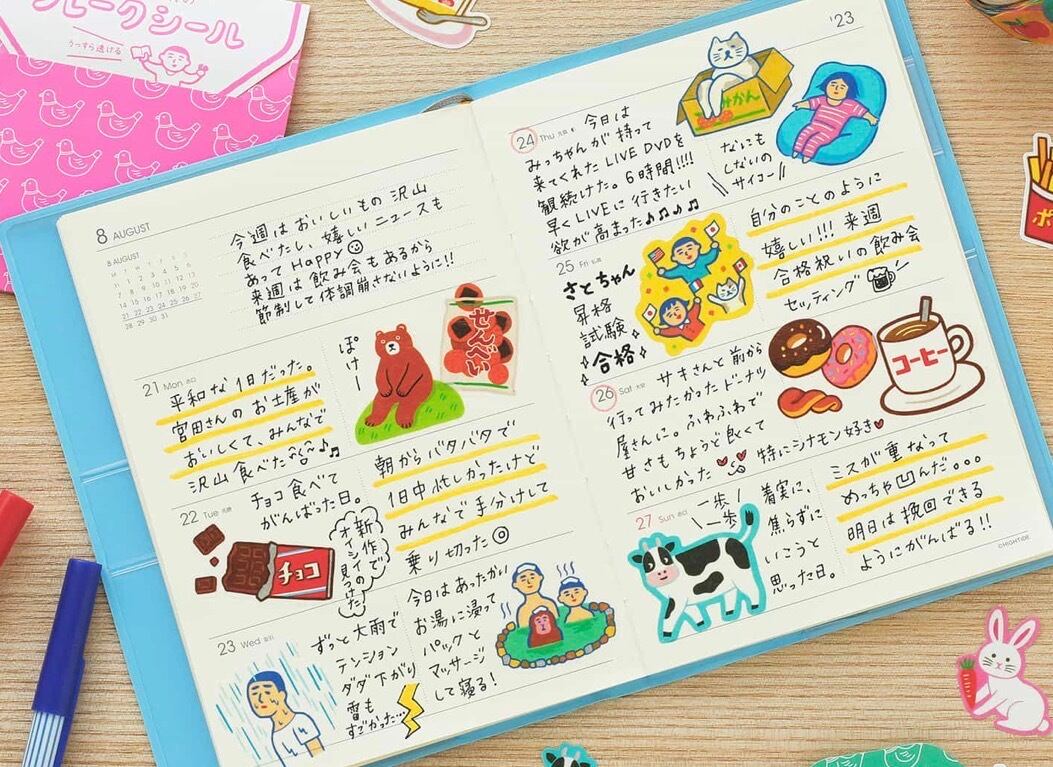 フレークシール
うっすら透ける
'23
8 AUGUST
8 AUGUST
M T W T F S S
1 2 3 4 5 6
7 8 9 10 11 12 13
14 15 16 17 18 19 20
21 22 23 24 25 26 27
28 29 30 31
今週はおいしいもの沢山
食べたし、嬉しいニュースも
あってHAPPY
来週は飲み会もあるから
節制して体調崩さないように!!
21 Mon 先口
平和な1日だった。
宮田さんのお土産が
おいしくて、みんなで
沢山食べた♪♫
ぽけー
せんべい
22 Tue
チョコ食べて
がんばった日。
新作で
オイシイの
見つけた!
チョコ
朝からバタバタで
1日中忙しかったけど
みんなで手分けして
乗り切った◎
23 Wed
ずっと大雨で
テンション
ダダ下がり
雷も
すごかった…
今日はあったかい
お湯に浸って
パックと
マッサージ
して寝る!
24 Thu
今日は
みっちゃんが持って
来てくれたLIVE DVDを
観続けた。6時間!!!!
早くLIVEに行きたい
欲が高まった♪♫♪♫
みかん
なにも
しないの
サイコー
25 Fri
さとちゃん
昇格
試験
合格
自分のことのように
嬉しい!!! 来週
合格祝いの飲み会
セッティング
26 Sat
サキさんと前から
行ってみたかったドーナツ
屋さんに。ふわふわで
甘さもちょうど良くて
おいしかった
特にシナモン好き♥
コーヒー
27 Sun
一歩
一歩
着実に、
焦らずに
いこうと
思った日。
ミスが重なって
めっちゃ凹んだ。。。
明日は挽回できる
ようにがんばる!!
©HIGHTIDE
ポ